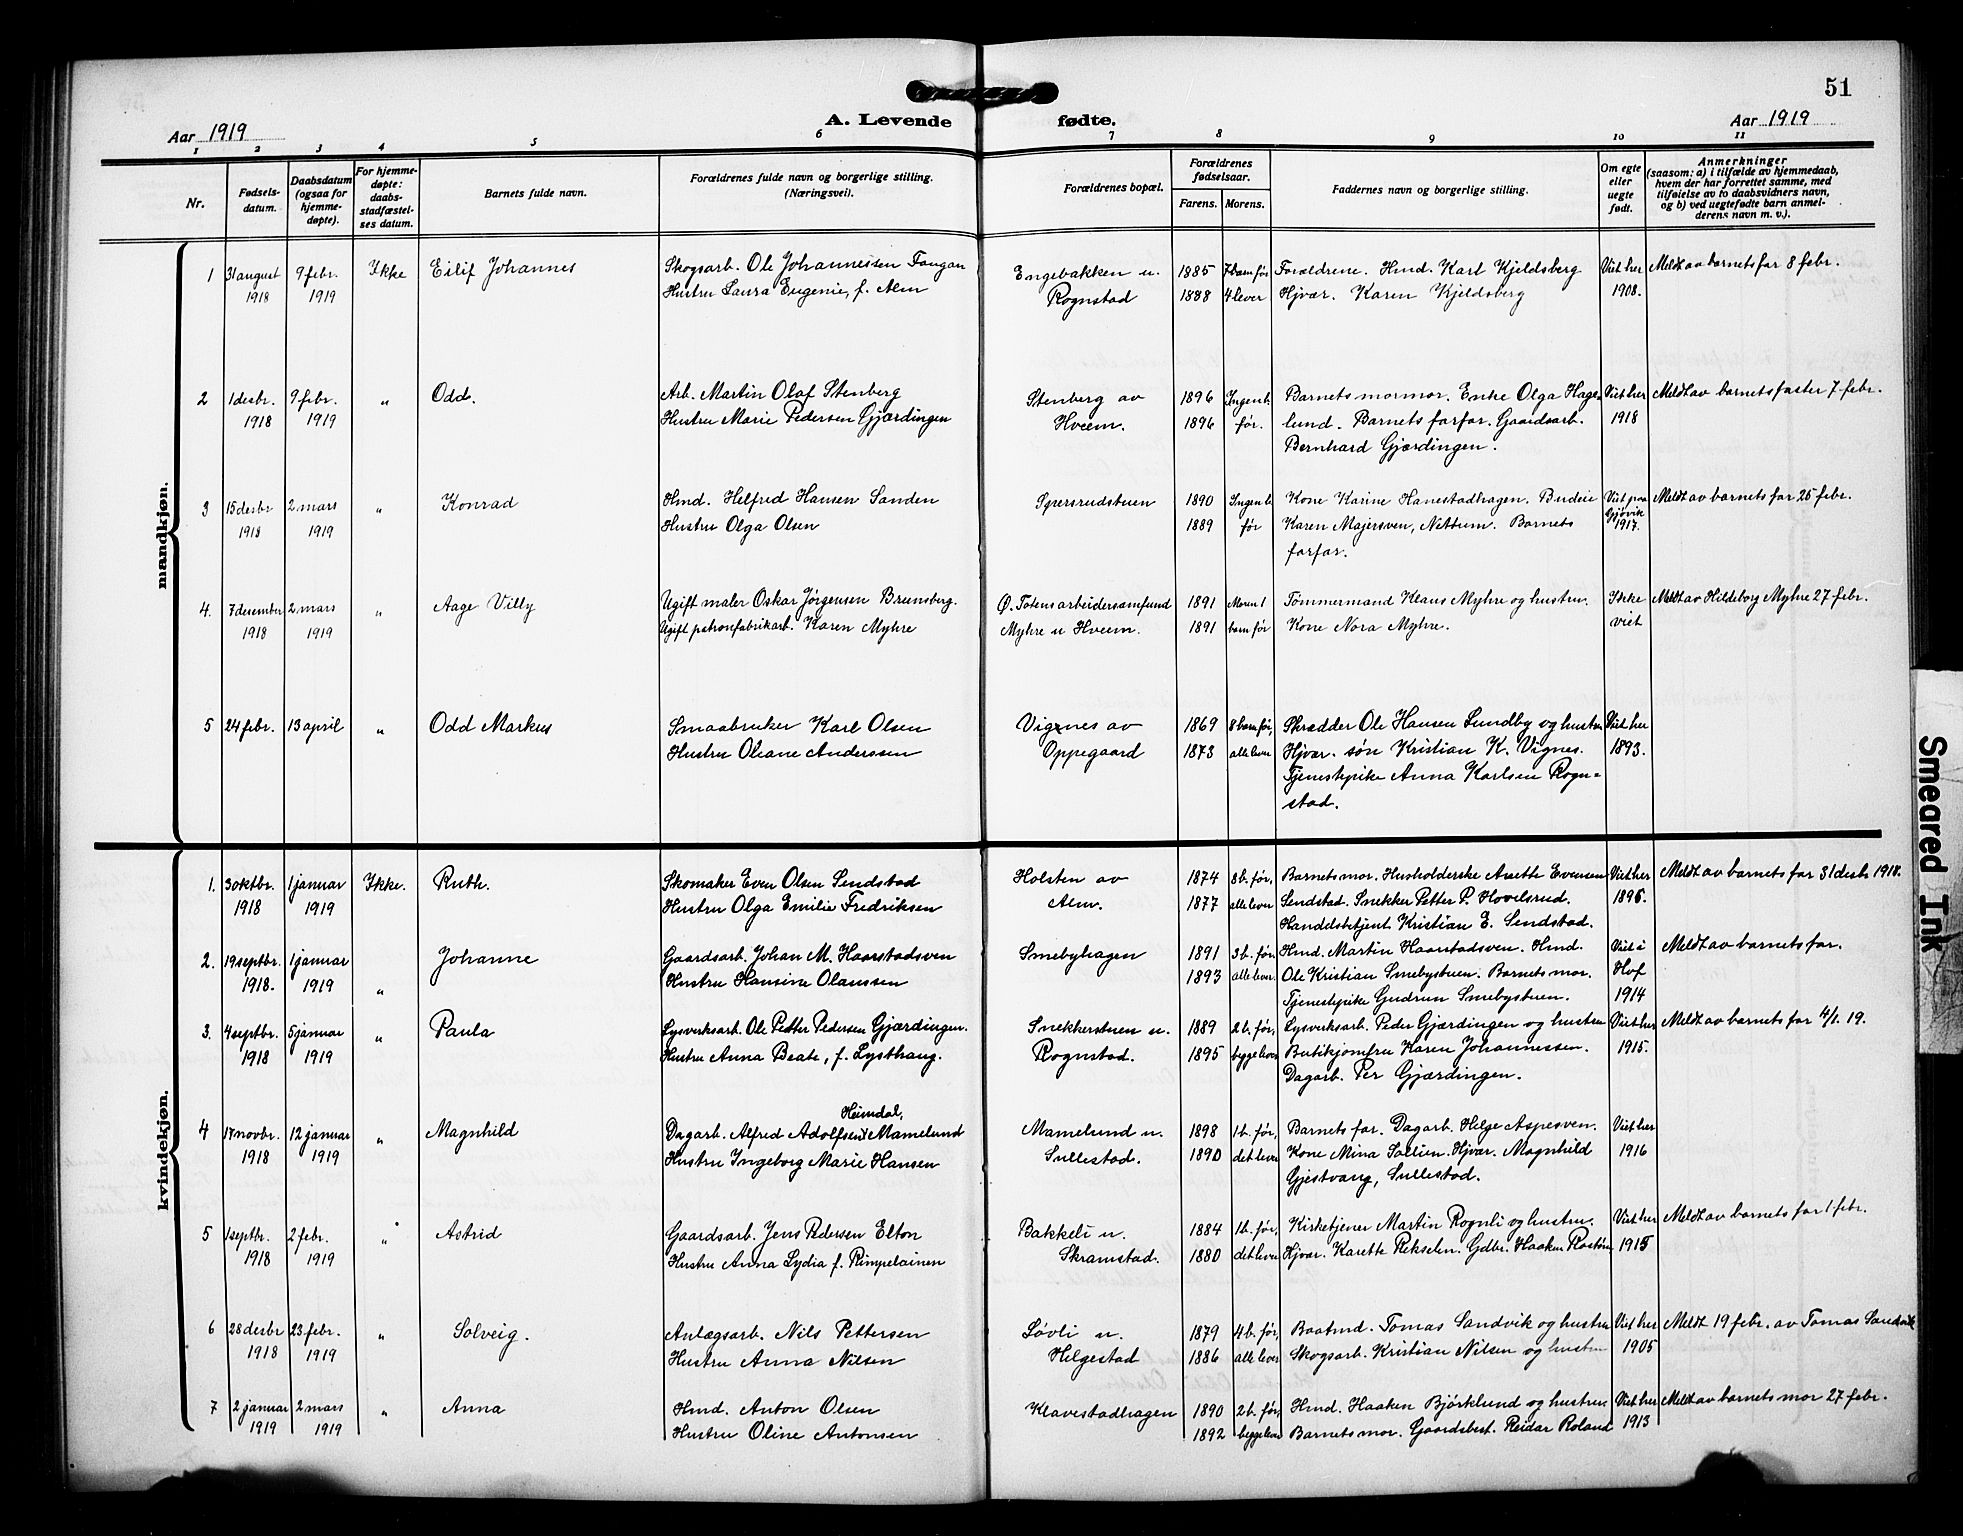 51
A. Levende fødte.
Aar 1919
Aar 1919
1 2 3 4 5 6 7 8 9 10 11
Nr.
Fødsels-
datum.
Daabsdatum
(ogsaa for
hjemme-
døpte).
For hjemme-
døpte:
daabs-
stadfæstel-
ses datum.
Barnets fulde navn.
Forældrenes fulde navn og borgerlige stilling.
(Næringsvei).
Forældrenes bopæl.
Forældrenes
fødselsaar.
Farens. Morens.
Faddernes navn og borgerlige stilling.
Om egte
eller
uegte
født.
Anmerkninger
(saasom: a) i tilfælde av hjemmedaab,
hvem der har forrettet samme, med
tilføielse av to daabsvidners navn,
og b) ved uegtefødte barn anmel-
derens navn m. v.).
mandkjøn.
1 31 august 9 febr. Ikke Eilif Johannes Skogsarb. Ole Johannessen Fangan Engebakken u. 1885 7 barn før Forældrene. Hmd. Karl Kjeldsberg Viet her Meldt av barnets far 8 febr.
1918 1919 Hustru Laura Eugenie, f. Alm Rognstad 1888 4 lever Hjvær. Karen Kjeldsberg 1908.
2 1 desbr. 9 febr. " Odd. Arb. Martin Olaf Stenberg Stenberg av 1896 Ingen b. Barnets mormor. Enke Olga Hage= Viet her Meldt av barnets faster 7 febr.
1918 1919 Hustru Marie Pedersen Gjærdingen Hveem. 1896 før. lund. Barnets farfar. Gaardsarb. 1918
Bernhard Gjærdingen.
3 15 desbr 2 mars " Konrad Hmd. Helfred Hansen Sanden 1890 Ingen b Kone Karine Hanestadhagen. Budeie Viet paa Meldt av barnets far 25 febr.
1918 1919 Hustru Olga Olsen 1889 før Karen Majersven, Nettum. Barnets Gjøvik
farfar. 1917.
4. 7 desember 2 mars " Aage Villy Ugift maler Oskar Jørgensen Brunsberg. Ø. Totens arbeidersamfund 1891 Moren 1 Tømmermand Klaus Myhre og hustru. Ikke Meldt av Hildeborg Myhre 27 febr.
1918 1919 Ugift patronfabrikarb. Karen Myhre Myhre u Hveem. 1891 barn før Kone Nora Myhre. viet
5 24 febr. 13 april " Odd Markus Smaabruker Karl Olsen Vignes av 1869 8 barn før, Skrædder Ole Hansen Lundby og hustru Viet her
Hustru Oliane Anderssen Oppegaard 1873 alle lever Hjvær. søn Kristian K. Vignes. 1893.
Tjenestepike Anna Karlsen Rogn=
stad.
kvindekjøn.
1. 30 ktbr. 1 januar Ikke. Ruth. Skomaker Even Olsen Sendstad Holsten av 1874 8 b. før, Barnets mor. Husholderske Anette Evensen Viet her Meldt av barnets far 31 desb 1918.
1918 1919 Hustru Olga Emilie Fredriksen Alm. 1877 alle lever Sendstad. Snekker Petter P. Hovelsrud. 1896.
Handelsbetjent Kristian E. Sendstad.
2. 19 septbr. 1 januar " Johanne Gaardsarb. Johan M. Haarstadsven Smebyhagen 1891 3 b. før, Hmd. Martin Haarstadsven. Hmd. Viet i Meldt av barnets far.
1918. 1919 Hustru Hansine Olaussen 1893 alle lever. Ole Kristian Smebystuen. Barnets mor. Hof
Tjenestepike Gudrun Smebystuen. 1914
3. 4 septbr. 5 januar " Paula Lysverksarb. Ole Petter Pedersen Gjærdingen. Snekkerstuen u. 1889 2 b. før, Lysverksarb. Peder Gjærdingen og hustru Viet her Meldt av barnets far 4/1. 19.
1918 1919 Hustru Anna Beate, f. Lysthaug. Rognstad. 1895 begge lever Butikjomfru Karen Johannessen. 1915.
Dagarb. Per Gjærdingen.
Heimdal,
4 17 novbr. 12 januar " Magnhild Dagarb. Alfred Adolfsen Mamelund Mamelund u. 1898 1 b. før, Barnets far. Dagarb. Helge Aspesven. Viet her
1918 1919 Hustru Ingeborg Marie Hansen Sullestad. 1890 det lever Kone Mina Sollien. Hjvær. Magnhild 1916
Gjestvang, Sullestad.
5 1 septbr. 2 febr. " Astrid Gaardsarb. Jens Pedersen Elton Bakkeli u. 1884 1 b. før, Kirketjener Martin Rognli og hustru. Viet her Meldt av barnets far 1 febr.
1918 1919 Hustru Anna Lydia f. Rimpelainen Skramstad. 1880 det lever Hjvær. Karette Rekselen. Gdbr. Haaken 1915
6 28 desbr 23 febr. " Solveig. Anlægsarb. Nils Pettersen Løvli u. 1879 4 b. før, Baatmd. Tomas Sandvik og hustru Viet her Meldt 19 febr. av Tomas Sandvik
1918 1919 Hustru Anna Nilsen Helgestad 1886 alle lever Skogsarb. Kristian Nilsen og hustru 1905
7 2 januar 2 mars " Anna Hmd. Anton Olsen Klavestadhagen 1890 2 b. før, Hmd. Haaken Bjørklund og hustru Viet her Meldt av barnets mor 27 febr.
1919 1919 Hustru Oline Antonsen 1892 begge lever Barnets mor. Gaardsbest. Reidar Roland 1913
Smeared Ink